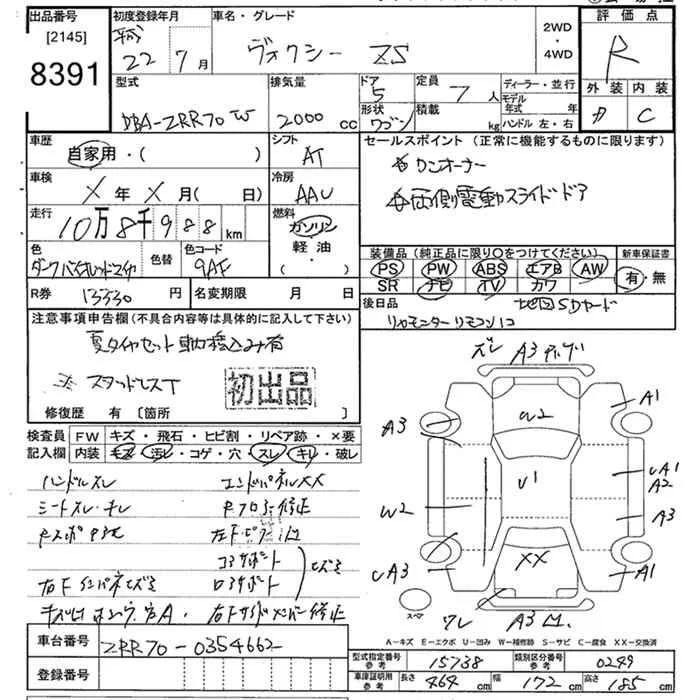 出品番号
[2145]
8391
初度登録年月
平成
22年7月
車名・グレード
ヴォクシー ZS
2WD
・
4WD
評価点
R
外装 内装
C
型式
DBA-ZRR70W
排気量
2000 cc
ドア
5
形状
ワゴン
定員
7人
積載
kg
ディーラー・並行
モデル年式 年
ハンドル 左・右
車歴
自家用・( )
シフト
AT
車検
X年X月( 日)
冷房
AAC
走行
10万8千988km
燃料
ガソリン
軽油
・( )
色
色替
色コード
9AF
R券
13330円
名変期限 月 日
セールスポイント(正常に機能するものに限ります)
ワンオーナー
両側電動スライドドア
装備品(純正品に限り○をつけてください)
PS PW ABS エアB AW
SR ナビ TV カワ
新車保証書
有・無
後日品
地図SDカード
リヤモニターリモコン1コ
注意事項申告欄(不具合内容等は具体的に記入して下さい)
夏タイヤセット車内積込み有
スタッドレスT
初出品
修復歴 有[箇所 ]
検査員記入欄
FW キズ・飛石・ヒビ割・リペア跡・×要
内装 キズ・汚レ・コゲ・穴・スレ・キレ・破レ
ハンドルスレ
エンドパネルXX
シートスレ・キレ
Rフロアー修正
コアサポート
ロアサポート
右下サイドメンバー修正
車台番号
ZRR70-0354662
登録番号
ズレ A3
A3
W2
A1
U1
UA1
A2
W2
A3
UA3
XX
A1
スペア
ワレ A3 凹
A-キズ E-エクボ U-凹み W-補修跡 S-サビ C-腐食 XX-交換済
型式指定番号
参考
15738
類別区分番号
参考
0249
車庫証明用
参考
長さ 464 cm
幅 172 cm
高さ 185 cm